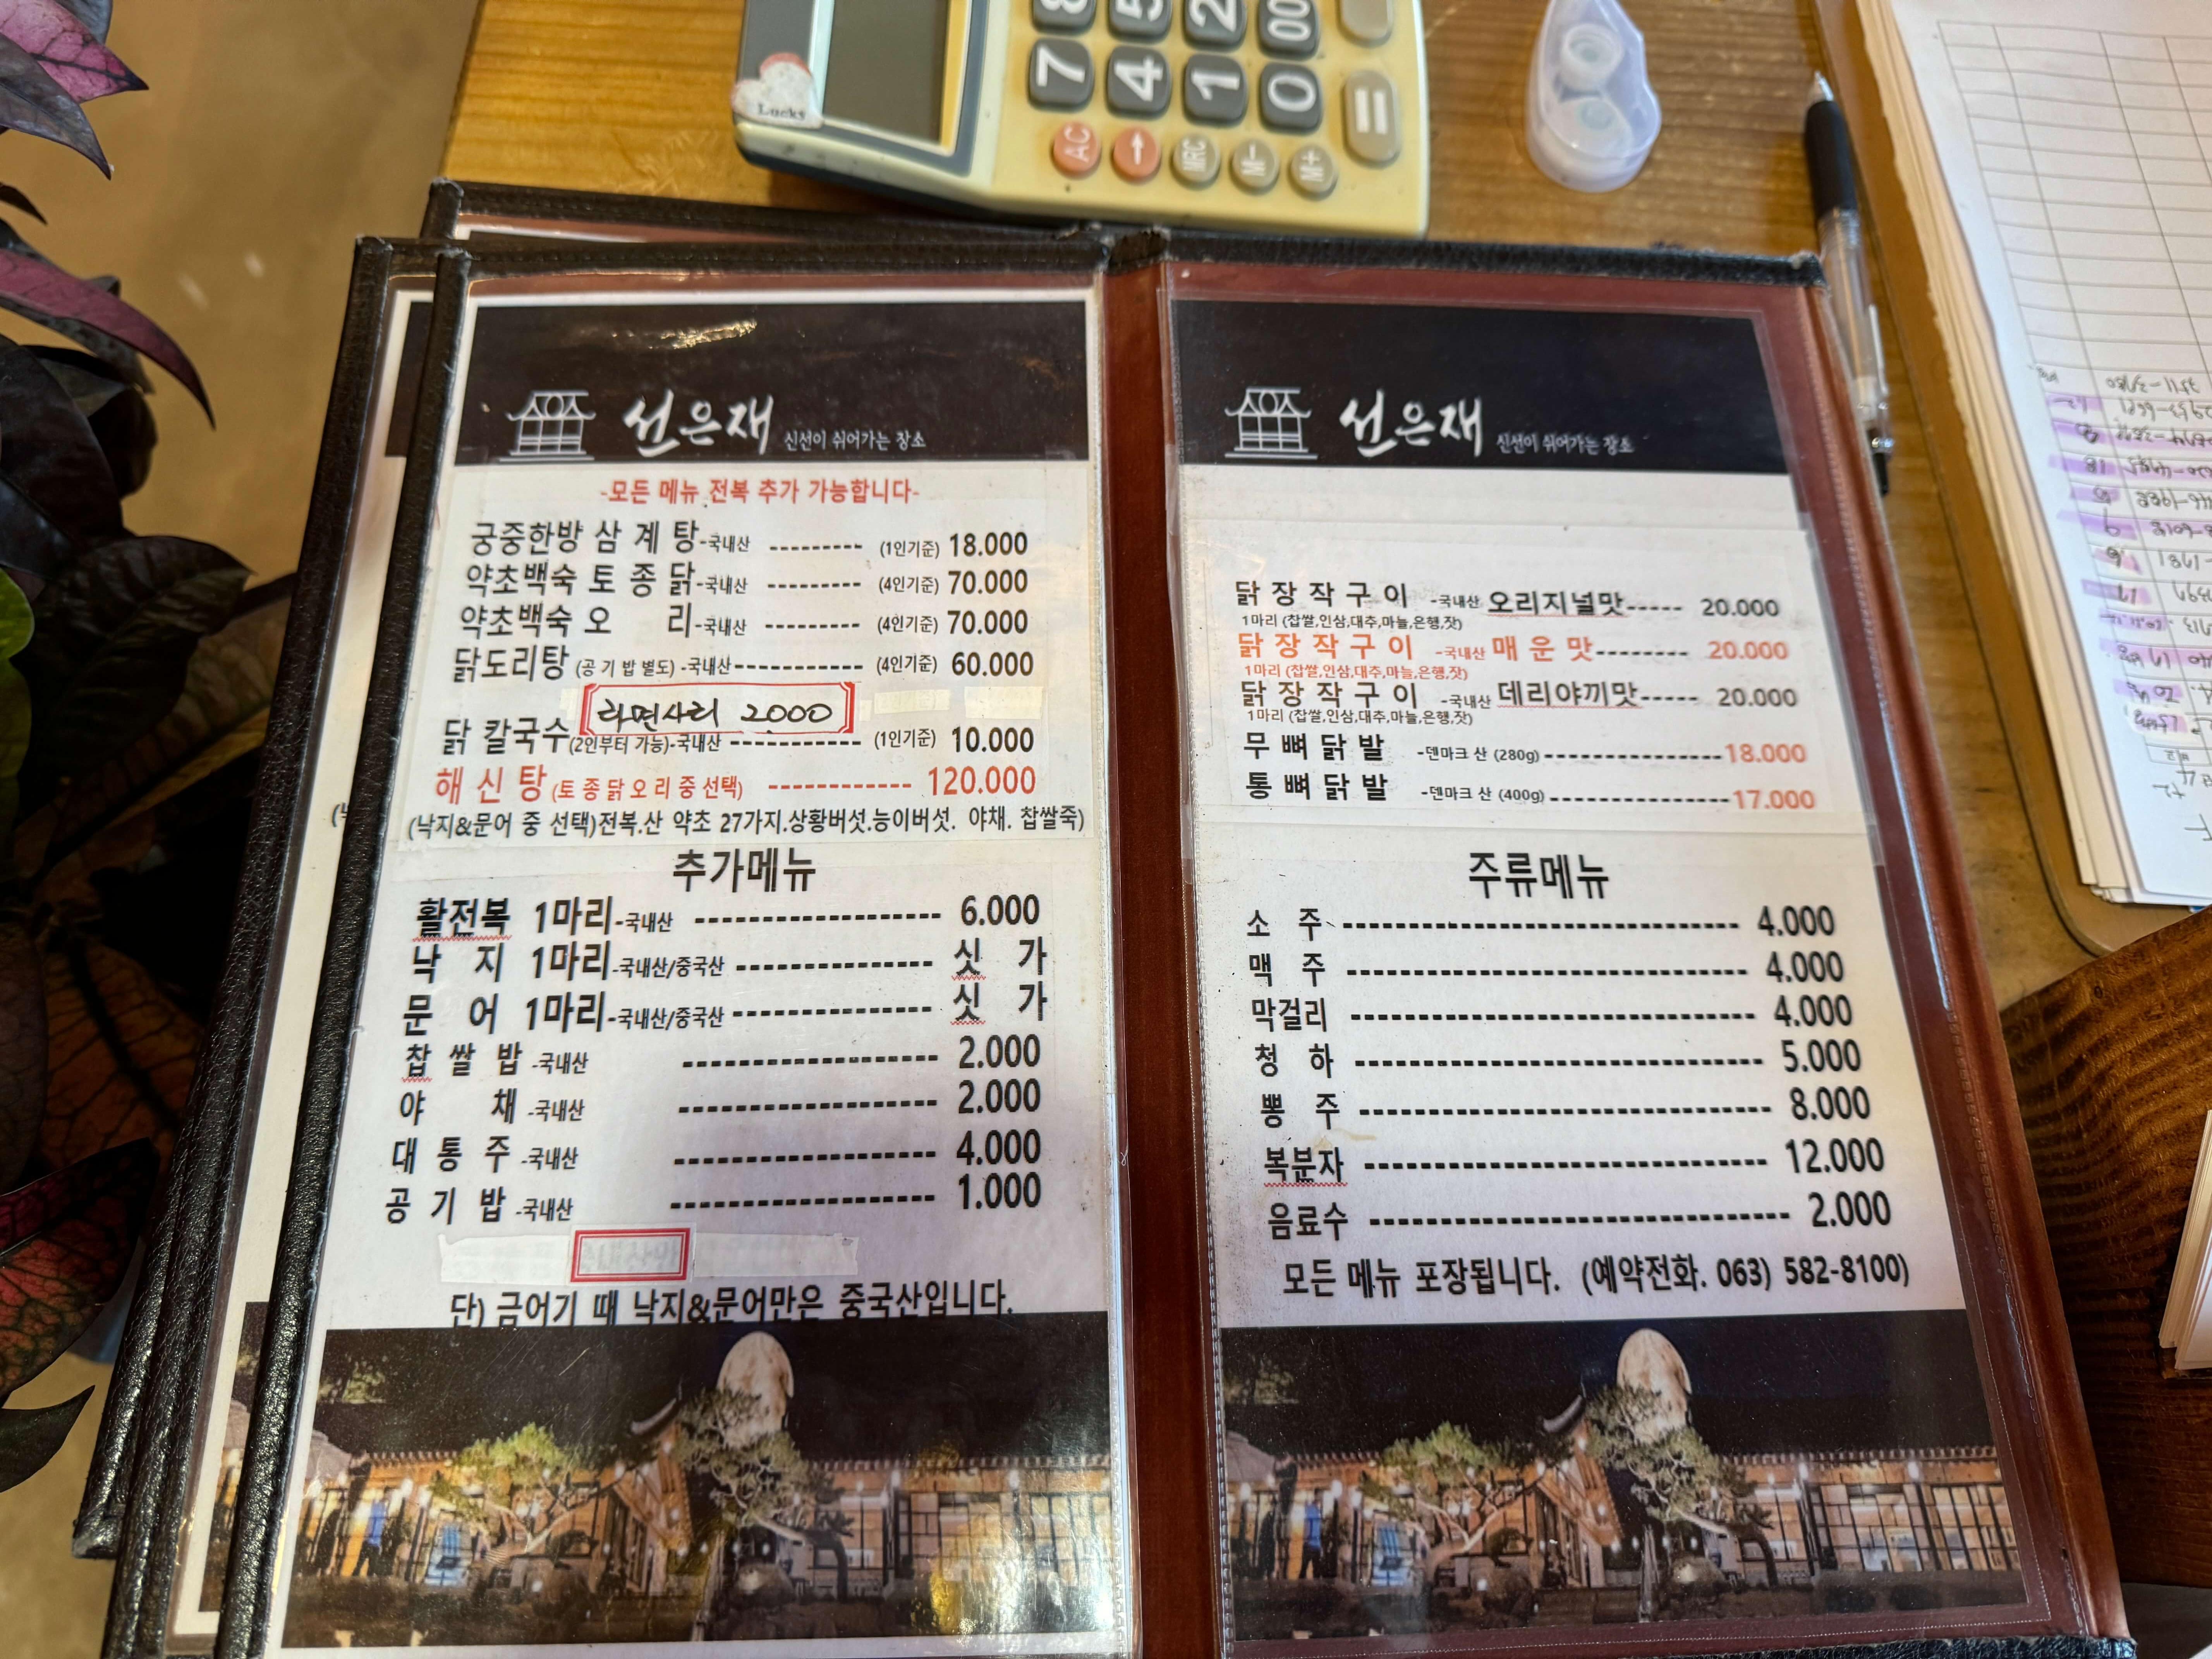 Lucks
7 4 1 0 00 =
AC MRC M- M+
선은재 신선이 쉬어가는 장소
-모든 메뉴 전복 추가 가능합니다-
궁중한방 삼 계 탕-국내산 --------- (1인기준) 18.000
약초백숙 토 종 닭-국내산 --------- (4인기준) 70.000
약초백숙 오 리-국내산 --------- (4인기준) 70.000
닭도리탕 (공 기 밥 별도) -국내산------------ (4인기준) 60.000
라면사리 2000
닭 칼국수(2인부터 가능)-국내산 ------------ (1인기준) 10.000
해 신 탕 (토 종 닭 오 리 중 선택) ------------ 120.000
(낙지&문어 중 선택)전복.산 약초 27가지.상황버섯.능이버섯. 야채. 찹쌀죽)
추가메뉴
활전복 1마리-국내산 ------------------- 6.000
낙 지 1마리-국내산/중국산 --------------- 싯 가
문 어 1마리-국내산/중국산 --------------- 싯 가
찹 쌀 밥 -국내산 ------------------- 2.000
야 채 -국내산 ------------------- 2.000
대 통 주 -국내산 ------------------- 4.000
공 기 밥 -국내산 ------------------- 1.000
단) 금어기 때 낙지&문어만은 중국산입니다.
선은재 신선이 쉬어가는 장소
닭 장 작 구 이 -국내산 오리지널맛----- 20.000
1마리 (찹쌀,인삼,대추,마늘,은행,잣)
닭 장 작 구 이 -국내산 매 운 맛-------- 20.000
1마리 (찹쌀,인삼,대추,마늘,은행,잣)
닭 장 작 구 이 -국내산 데리야끼맛----- 20.000
1마리 (찹쌀,인삼,대추,마늘,은행,잣)
무 뼈 닭 발 -덴마크 산 (280g)------------------18.000
통 뼈 닭 발 -덴마크 산 (400g)------------------17.000
주류메뉴
소 주 ------------------------------ 4.000
맥 주 ------------------------------ 4.000
막걸리 ------------------------------ 4.000
청 하 ------------------------------ 5.000
뽕 주 ------------------------------ 8.000
복분자 ------------------------------ 12.000
음료수 ------------------------------ 2.000
모든 메뉴 포장됩니다. (예약전화. 063) 582-8100)